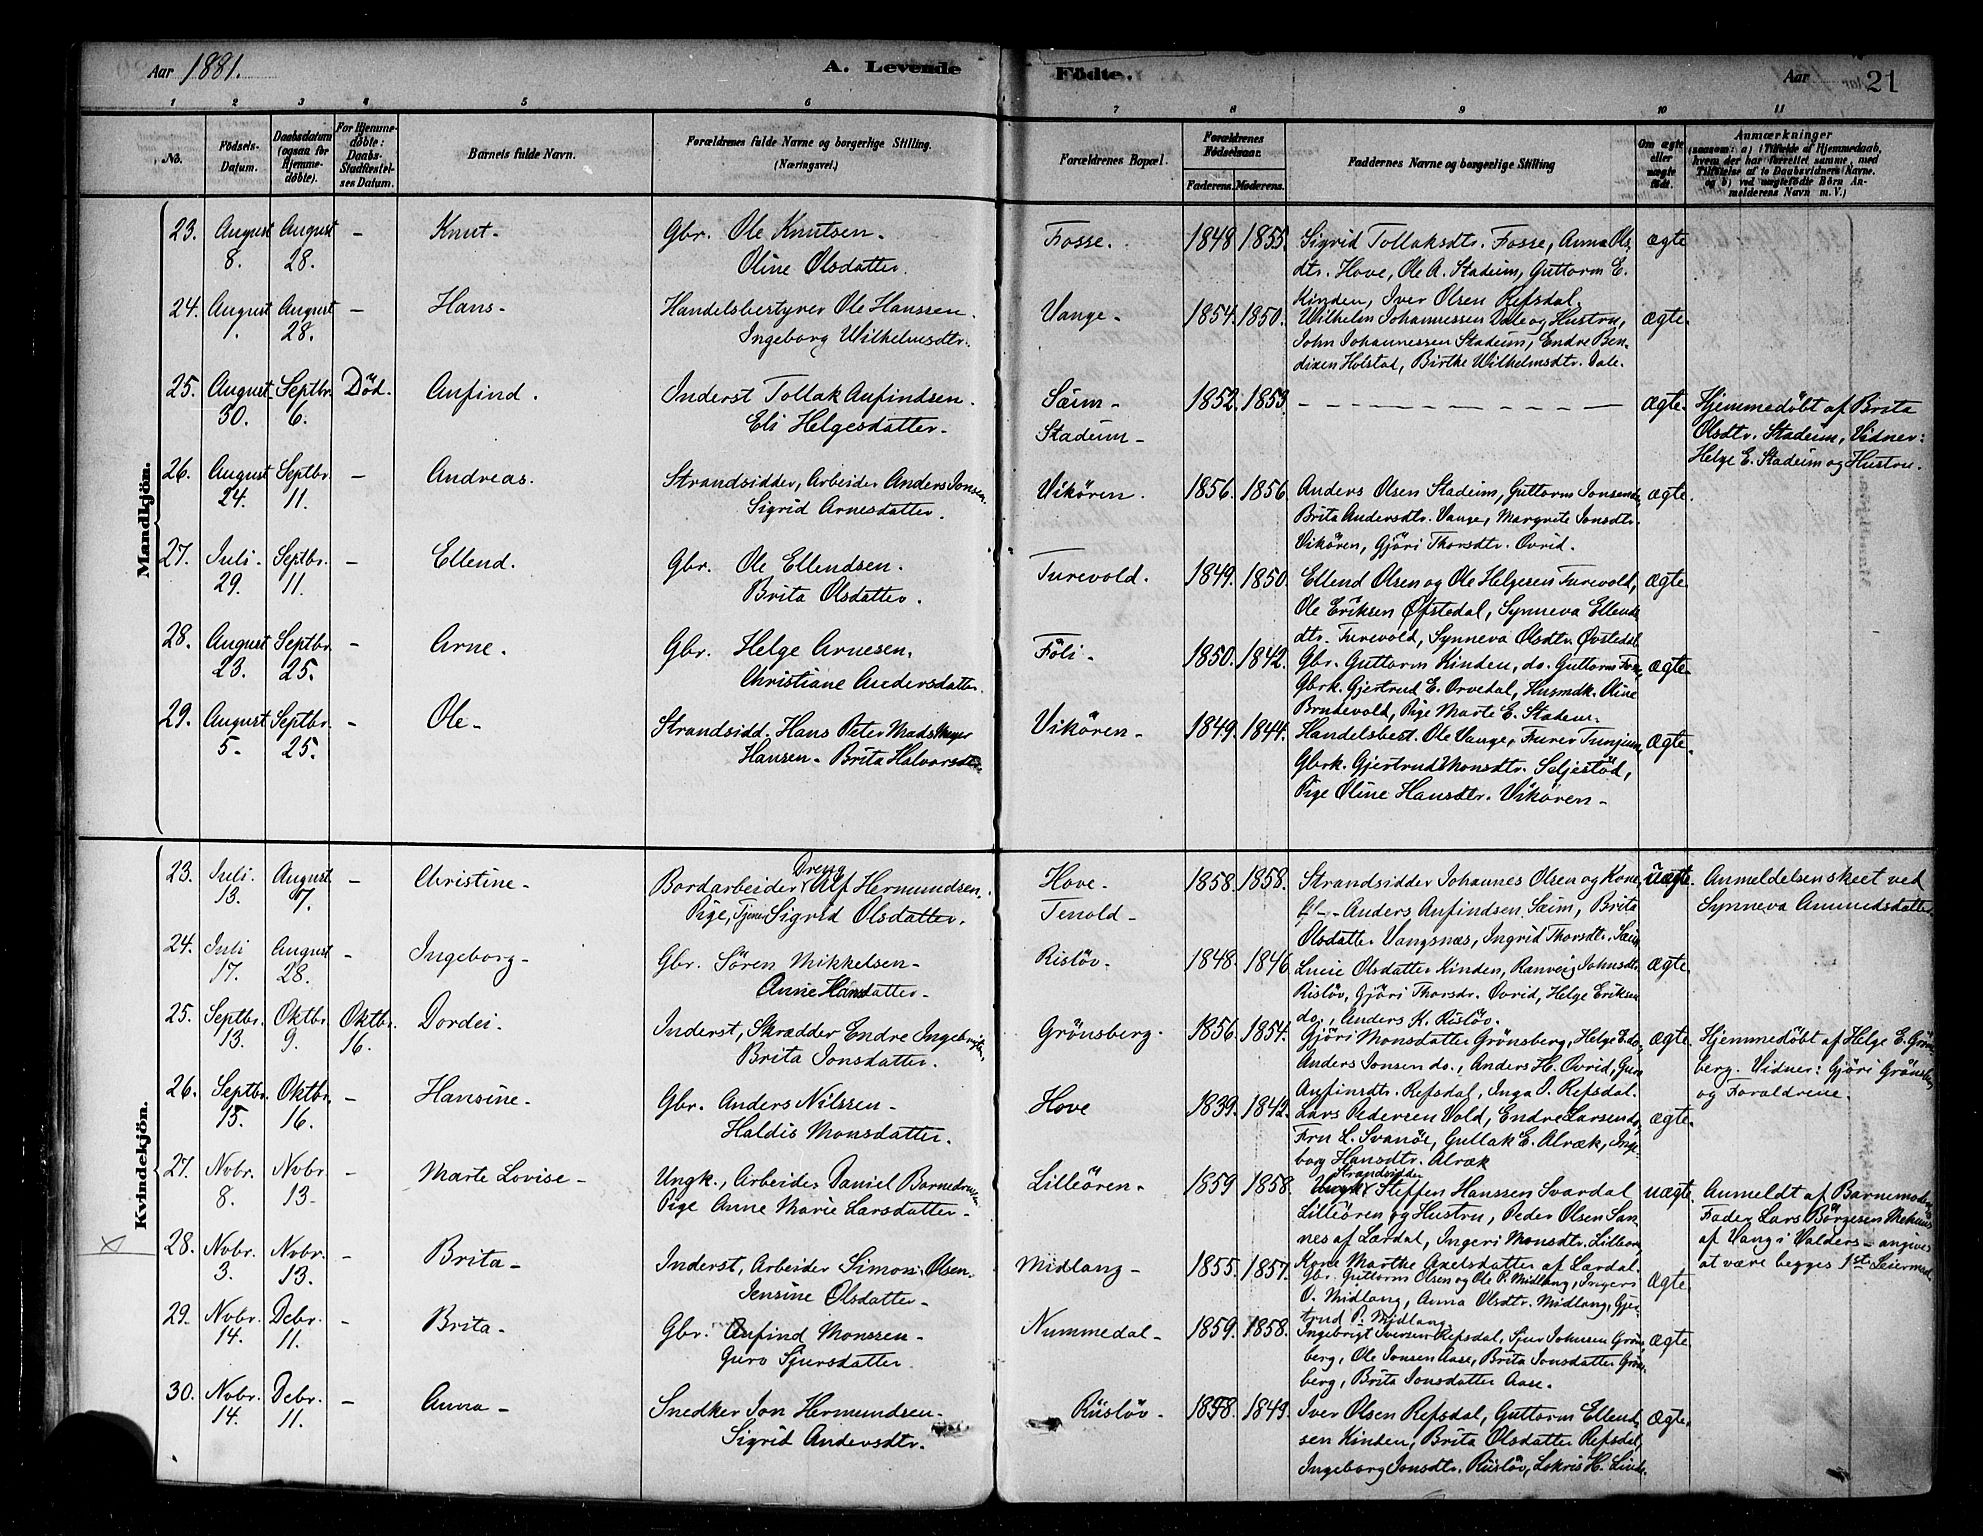 Aar 1881.
A. Levende
Födte.
Aar
21
1 2 3 4 5 6 7 8 9 10 11
No.
Födsels-Datum.
Daabsdatum (ogsaa for Hjemmedöbte).
For Hjemmedöbte: Daabs-Stadfæstelses Datum.
Barnets fulde Navn.
Forældrenes fulde Navne og borgerlige Stilling. (Næringsvei.)
Forældrenes Bopæl.
Forældrenes Födselsaar.
Faderens. Moderens.
Faddernes Navne og borgerlige Stilling
Om ægte eller uægte födt.
Anmærkninger
(saasom: a) i Tilfælde af Hjemmedaab, hvem der har forrettet samme, med Tilföielse af to Daabsvidners Navne. og b) ved uægtefödte Börn Anmelderens Navn m. V.)
Mandkjön.
23. August 8. August 28. - Knut - Gbr. Ole Knutsen - Oline Olsdatter. Fosse. 1848 1855. Sigrid Tollaksdtr. Fosse, Anna Ols
dtr. Hove, Ole A. Stadeim, Guttorm E.
Kinden, Iver Olsen Refsdal. ægte
24. August 1. August 28. - Hans - Handelsbestyrer Ole Hanssen. Ingeborg Wilhelmsdtr. Vange - 1854. 1850. Wilhelm Johannessen Dale og Hustru,
John Johannessen Stadeim, Endre Ben-
dixen Holstad, Birthe Wilhelmsdtr. Dale. ægte.
25. August 30. Septbr. 6. Död. Anfind. Inderst Tollak Anfindsen. Eli Helgesdatter - Sæim - Stadeim - 1852. 1853. - - - ægte. Hjemmedöbt af Brita
Olsdtr. Stadeim, Vidner:
Helge E. Stadeim og Hustru.
26. August 24. Septbr. 11. - Andreas. Strandsidder, Arbeider Anders Jonsen Sigrid Arnesdatter. Vikören. 1856. 1856. Anders Olsen Stadeim, Guttorm Jonsen do,
Brita Andersdtr. Vange, Margrete Jonsdtr.
Vikören, Gjöri Thorsdtr. Ovrid. ægte.
27. Juli 29. Septbr. 11. - Ellend. Gbr. Ole Ellendsen. Brita Olsdatter. Turevold. 1849. 1850. Ellend Olsen og Ole Helgesen Turevold,
Ole Eriksen Öfstedal, Synneva Ellends
dtr. Turevold, Synneva Olsdtr. Övstedal ægte.
28. August 23. Septbr. 25. - Arne. Gbr. Helge Arnesen. Christiane Andersdatter. Föli - 1850. 1842. Gbr. Guttorm Kinden, do. Guttorm
Gbrk. Gjertrud E. Orvedal, Husmdk. Oline
Brudevold, Pige Marte E. Stadem - ægte.
29. August 5. Septbr. 25. - Ole - Strandsidd. Hans Peter Mads
Hansen - Brita Halvorsdtr. Vikören - 1849. 1844. Handelsbest. Ole Vange, Furer Tunjum,
Gbrk. Gjertrud Monsdtr. Seljestöd,
Pige Oline Hansdtr. Vikören - ægte.
Kvindekjön.
23. Juli 13. August 7. - Christine - Bordarbeider Dreng Alf Hermundsen.
Pige, Tjener Sigrid Olsdatter. Hove - Tenold - 1858. 1858. Strandsidder Johannes Olsen og Kone,
Anders Anfindsen Sæim, Brita
Olsdatter Vangsnæs, Ingrid Thorsdtr. Sæim uægte. Anmeldelsen skeet ved
Synneva Amundsdatter
24. Juli 17. August 28. - Ingeborg - Gbr. Sören Mikkelsen - Anne Hansdatter - Rislöv. 1848. 1846. Lucie Olsdatter Kinden, Ranveig Johnsdtr.
Rislöv, Gjöri Thorsdr. Ovrid, Helge Eriksen
do., Anders K. Rislöv. ægte.
25. Septbr. 13. Oktbr. 9. Oktbr. 16. Dordei. Inderst, Skrædder Endre Ingebrigtsen, Brita Jonsdatter. Grönsberg. 1856. 1854. Gjöri Monsdatter Grönsberg, Helge E. do.
Anders Jonsen do., Anders H. Ovrid, Guri
Anfinsdtr. Refsdal, Inga O. Refsdal. ægte. Hjemmedöbt af Helge E. Gröns
berg. Vidner: Gjöri Grönsberg
og Forældrene.
26. Septbr. 15. Oktbr. 16. - Hansine. Gbr. Anders Nilssen - Haldis Monsdatter. Hove 1839. 1842. Lars Pedersen Vold, Endre Larsen do,
Fru L. Svanöe, Gullak E. Alræk, Inge-
borg Hansdtr. Alræk ægte.
27. Novbr. 8. Novbr. 13 - - Marte Lovise - Ungk., Arbeider Daniel
Pige Anne Marie Larsdatter - Lilleören - 1859 1858. Strandsidder Steffen Hanssen Svardal
Lilleören og Hustru, Peder Olsen San-
nes af Lærdal, Ingeri Monsdtr. Lilleör,
Kone Marthe Axelsdatter af Lærdal. uægte. Anmeldt af Barnemoderens
Fader Lars Börgesen
af Vang i Valders - angives
at være begges 1ste Leiermaal
28. Novbr. 3. Novbr. 13. - Brita - Inderst, Arbeider Simon Olsen. Jensine Olsdatter - Midlang - 1855. 1857. Gbr. Guttorm Olsen og Ole P. Midlang, Ingeri
O. Midlang, Anna Olsdtr. Midlang, Gjer-
trud P. Midlang. Ægte.
29. Novbr. 14. Debr. 11. - Brita - Gbr. Anfind Monssen - Guro Sjursdatter. Nummedal - 1859. 1858. Ingebrigt Iversen Refsdal, Sjur Johnsen Gröns
berg, Ole Jonsen Aase, Brita Jonsdatter Gröns
berg, Brita Jonsdatter Aase. ægte.
30. Novbr. 14. Debr. 11. - Anna - Snedker Jon Hermundsen - Sigrid Andersdtr. Riislöv - 1858. 1849. Iver Olsen Refsdal, Guttorm Ellend-
sen Kinden, Brita Olsdatter Refsdal,
Ingeborg Jonsdtr. Riislöv, ægte.